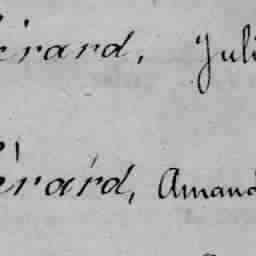 érard, Juli
érard, Amand